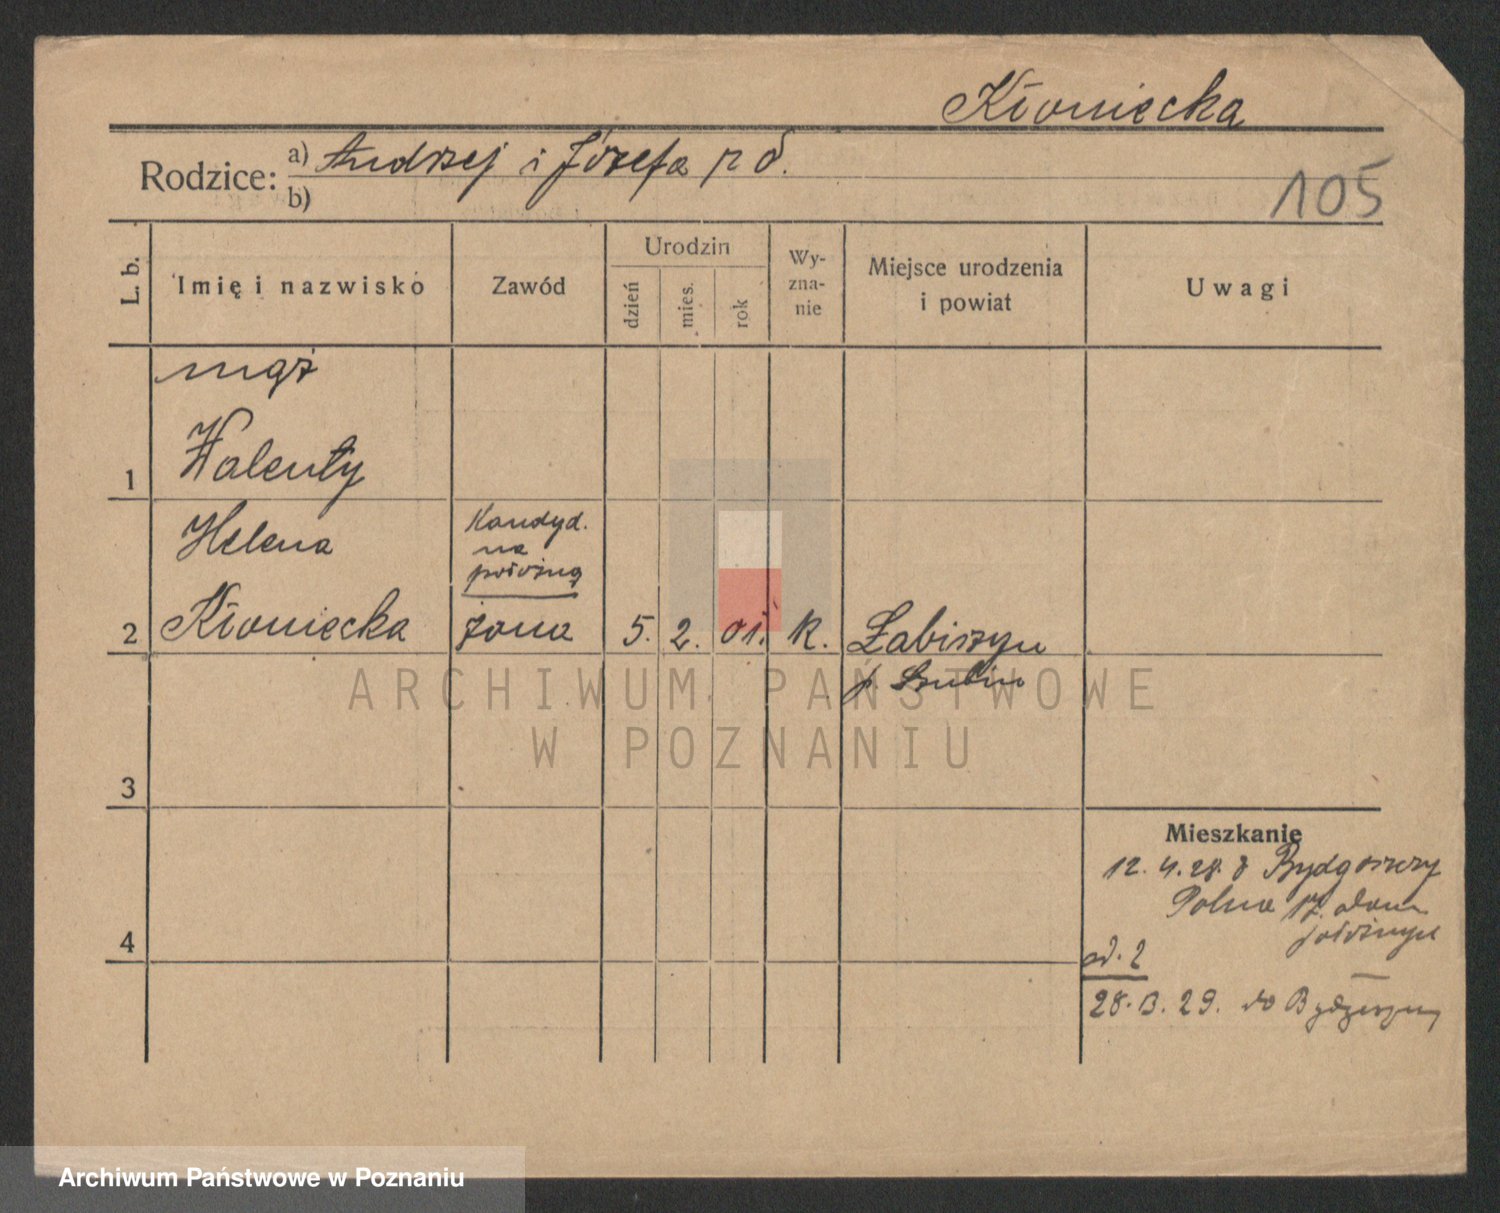 Kłoniecka
Rodzice: a) Andrzej i Józefa
b)
105
L. b.
Imię i nazwisko
Zawód
Urodzin
dzień
mies.
rok
Wy-
zna-
nie
Miejsce urodzenia
i powiat
Uwagi
mąż
1 Walenty
Helena
Kandyd.
na
położną
2 Kłoniecka żona 5. 2. 01. k. Łabiszyn
p Szubin
ARCHIWUM PAŃSTWOWE
W POZNANIU
3
Mieszkanie
12. 4. 28. z Bydgoszczy
Polna 17. dom
położnych
4
ad. 2
28. 3. 29. do Bydgoszczy
Archiwum Państwowe w Poznaniu